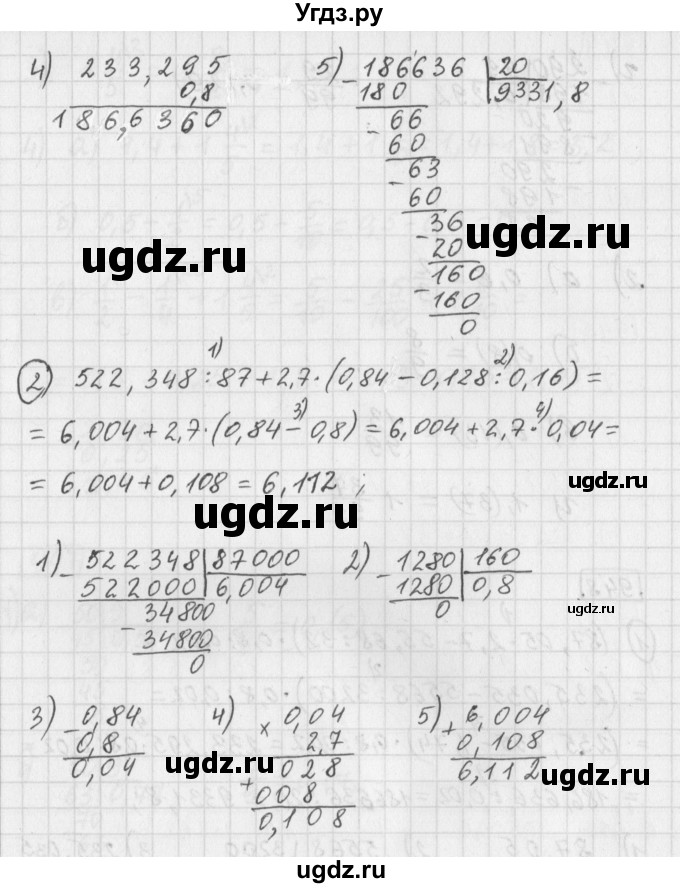 Угдз.ру
4) 233,295
0,8
186,6360
5) -186636 | 20
180 | 9331,8
66
- 60
63
- 60
36
- 20
160
- 160
0
ugdz.ru
ugdz.ru
2) 522,348 : 87 + 2,7 · (0,84 - 0,128 : 0,16) =
1) 2)
= 6,004 + 2,7 · (0,84 - 0,8) = 6,004 + 2,7 · 0,04 =
3) 4)
= 6,004 + 0,108 = 6,112 ;
ugdz.ru
ugdz.ru
1) -522348 | 87000
522000 | 6,004
34800
- 34800
0
2) -1280 | 160
1280 | 0,8
0
ugdz.ru
3) -0,84
0,8
0,04
4) × 0,04
2,7
028
+ 008
0,108
5) + 6,004
0,108
6,112
ugdz.ru
ugdz.ru
ugdz.ru
ugdz.ru